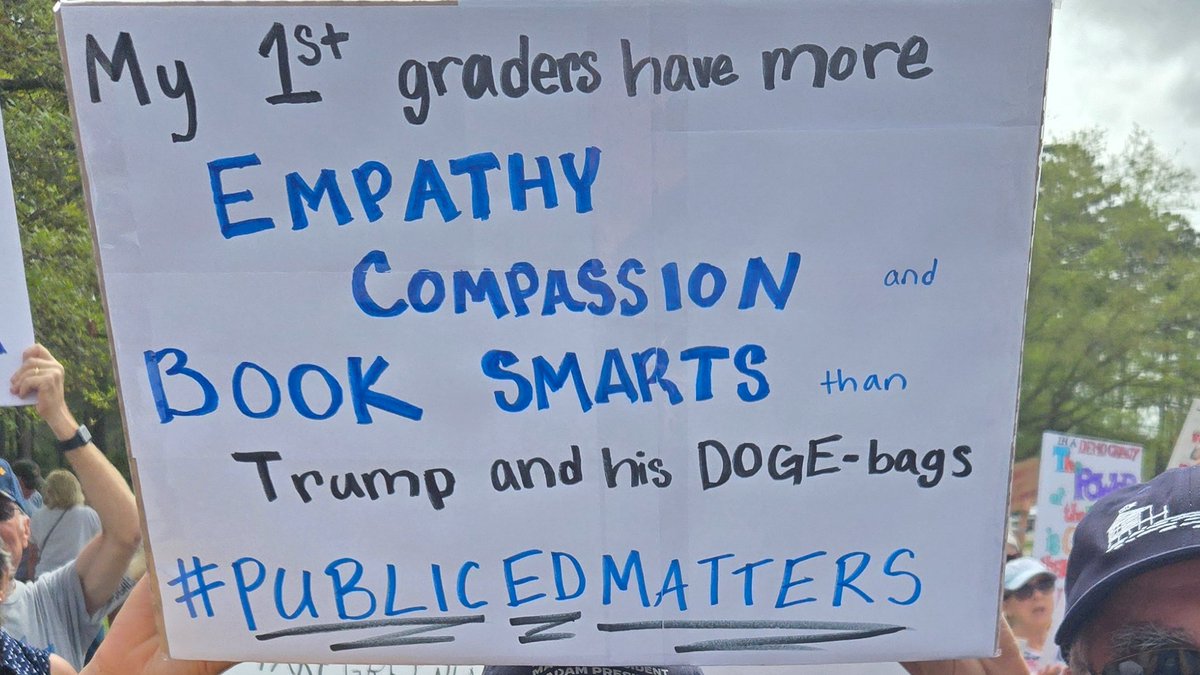 My 1st graders have more
EMPATHY
COMPASSION and
BOOK SMARTS than
Trump and his DOGE-bags
#PUBLICEDMATTERS
IN A DEMOCRACY
MADAM PRESIDENT